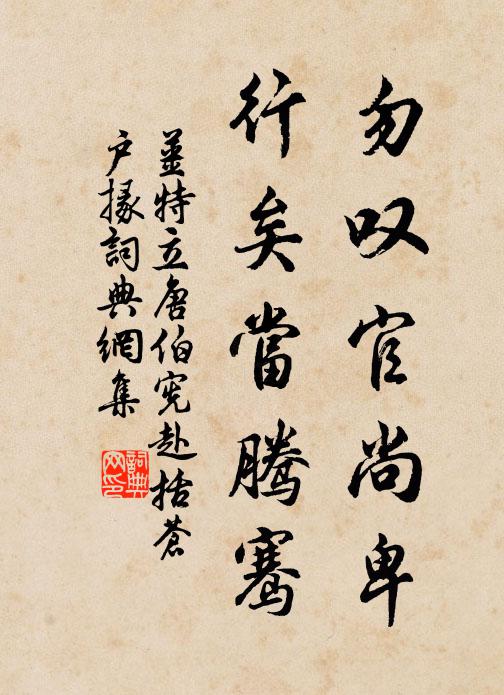 勿叹官尚卑
行矣當騰騫
姜特立唐伯宪赴括蒼
户掾詞典網集
詞典
网印